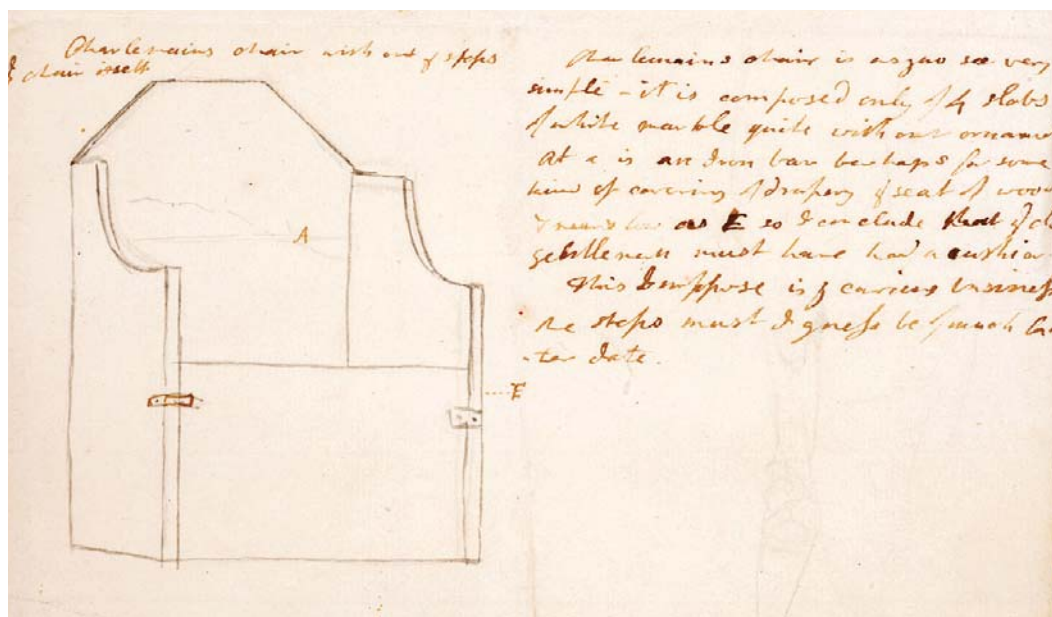 Charlemains chair with out y steps
y chair itself
A
E
Charlemains chair is as you see very
simple - it is composed only of 4 slabs
of white marble quite with out orname
At a is an Iron bar perhaps for some
kind of covering of drapery y seat of wood
as E so I conclude that y old
gentleman must have had a cushion
This I suppose is y curious business
the steps must I guess be of much la
-ter date.